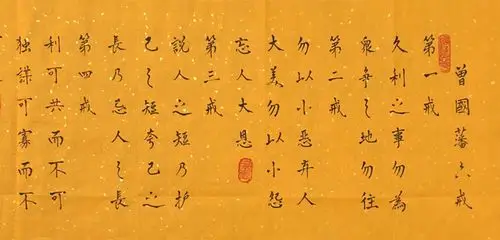 曾國藩六戒
第一戒
久利之事勿為
衆争之地勿往
第二戒
勿以小惡弃人
大美勿以小怨
忘人大恩
第三戒
說人之短乃护
己之短夸己之
長乃忌人之長
第四戒
利可共而不可
独謀可寡而不